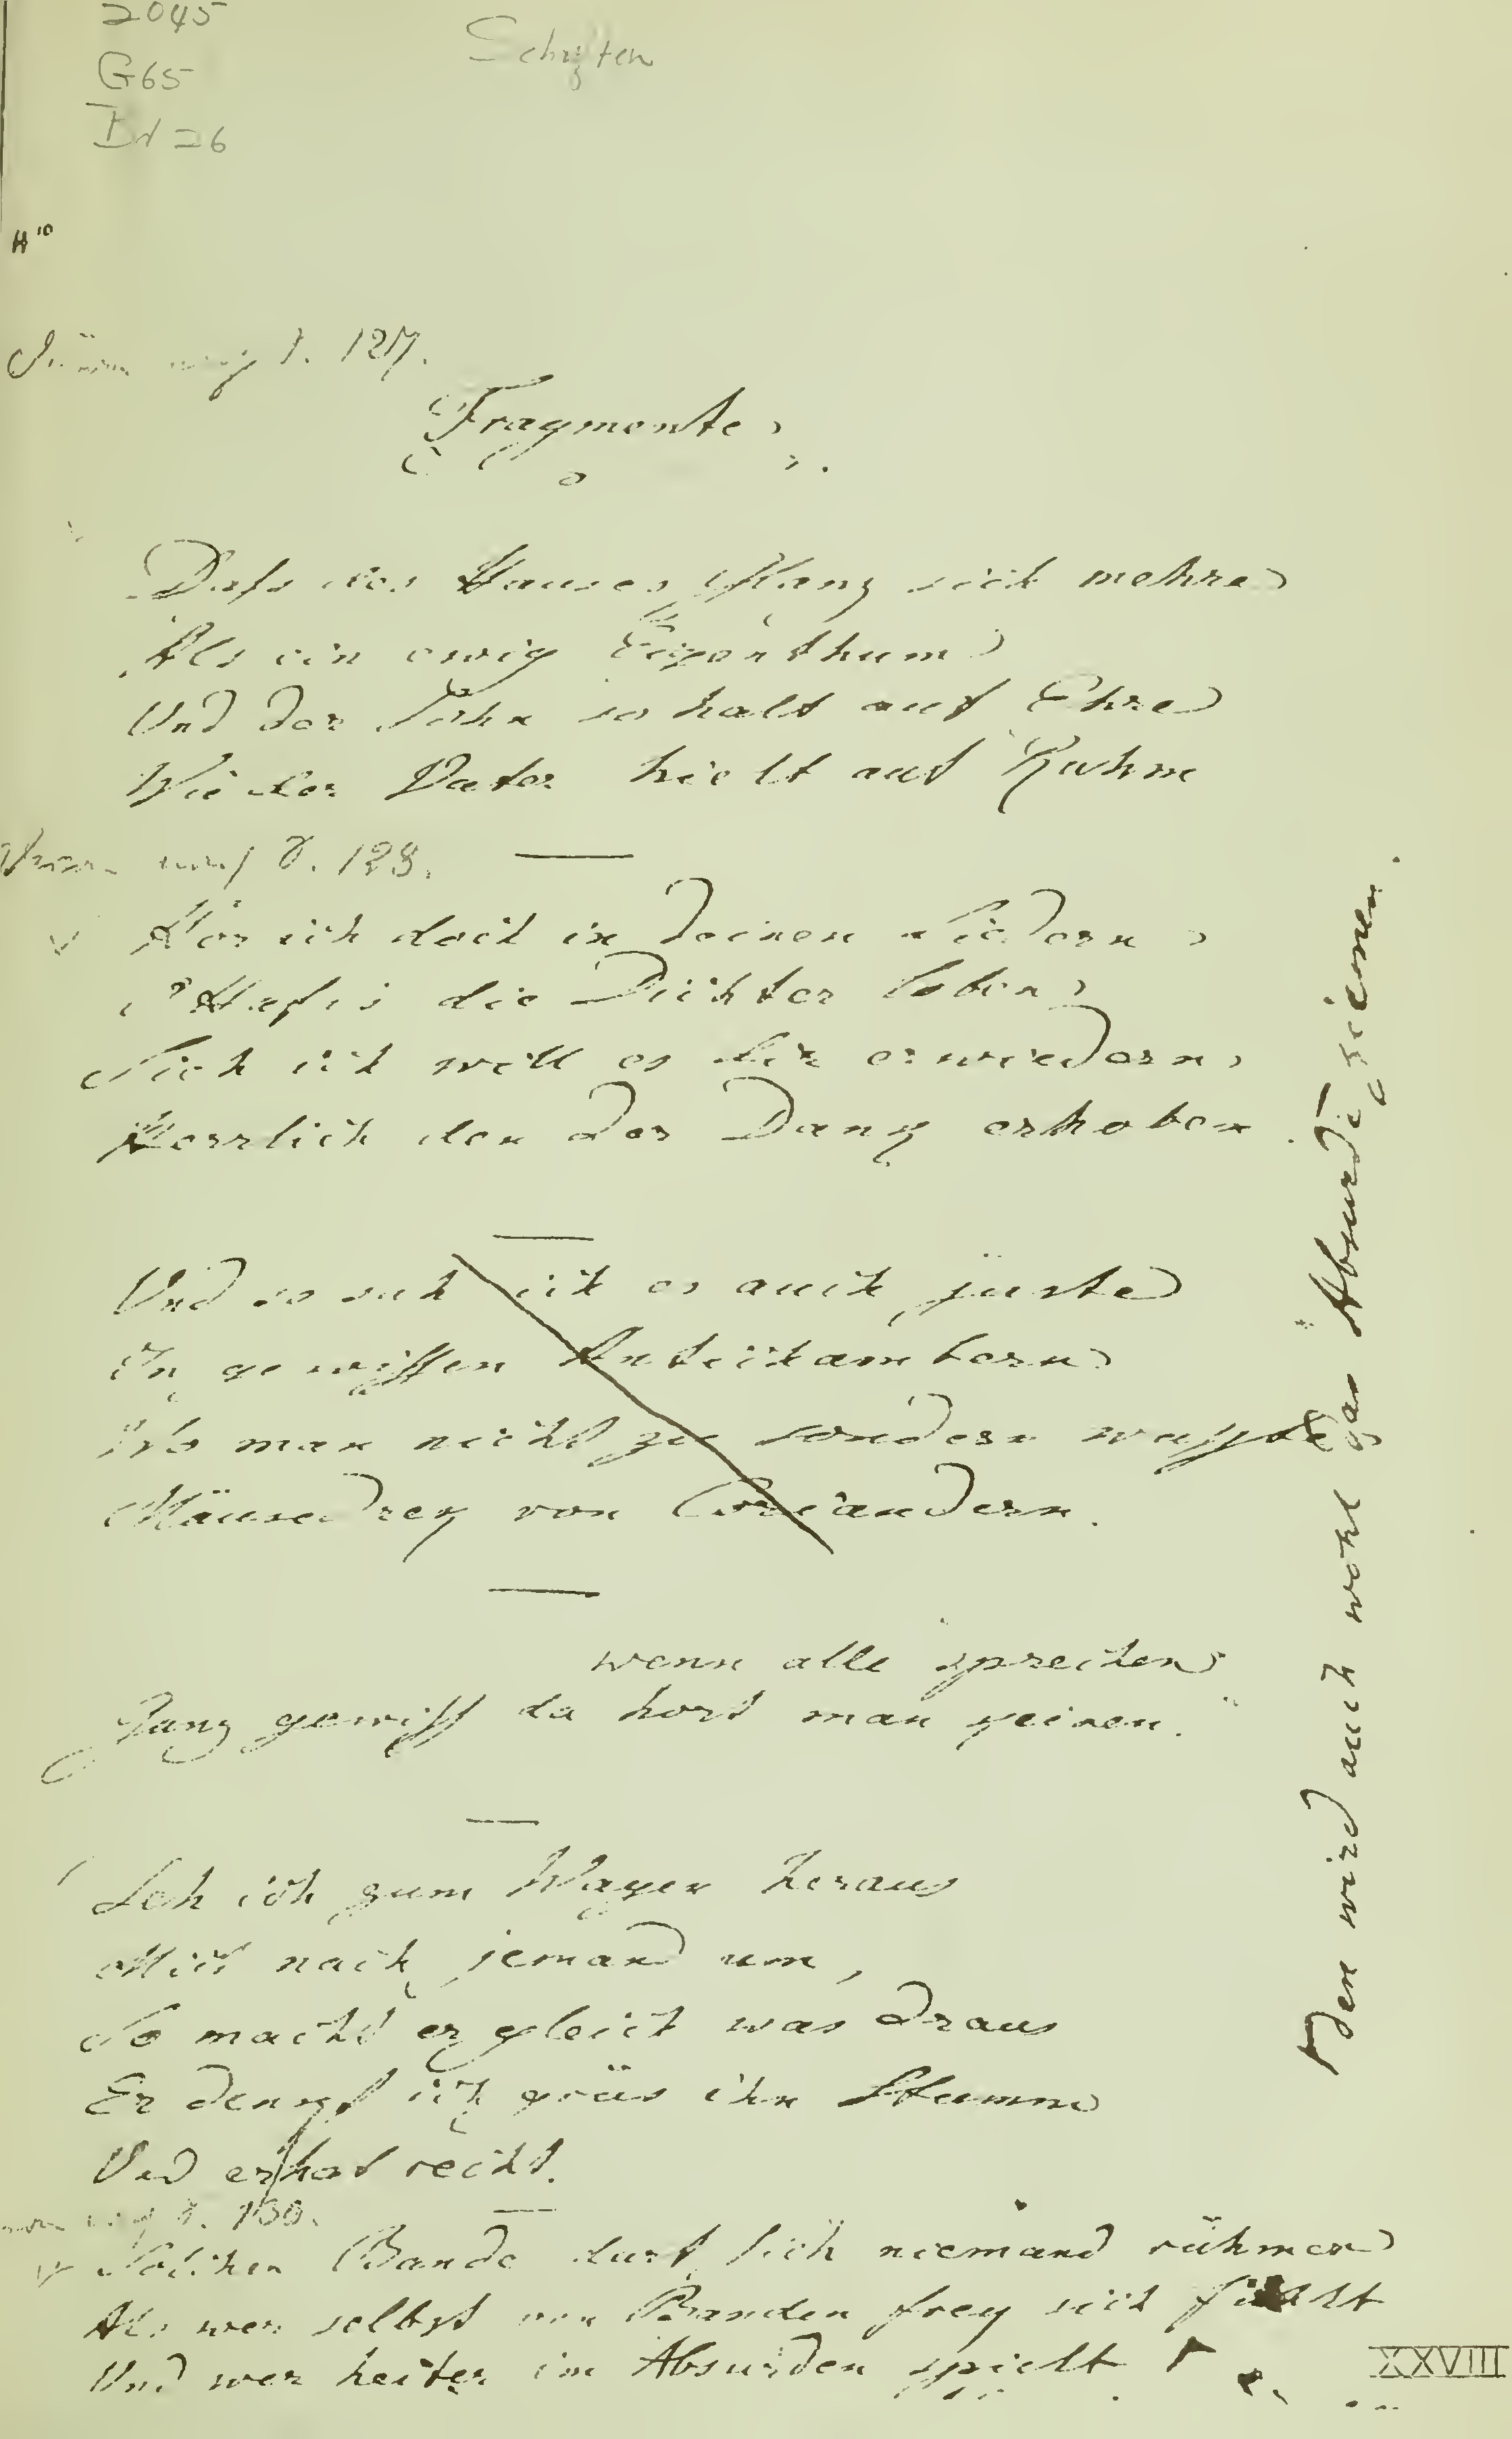 2045
G65
Bd 26
Schriften
H¹⁰
127.
Fragmente
Dass des Hauses Glanz sich mehre
Als ein ewig Eigenthum
Und der Sohn so halt auf Ehre
Wie der Vater hielt auf Ruhm
128.
Hör ich doch in deinen Liedern
O Hafis die Dichter loben,
Sieh ich will es dir erwiedern,
Herrlich den der Danck erhoben.
Und so sah ich es auch juste
In gewissen Antichambern
Wo man nicht zu sondern wusste
Mäusedreck von Coriandern.
wenn alle sprechen
Ganz gewiss da hört man keinen.
Seh ich zum Wagen heraus
Mich nach jemand um,
So macht er gleich was draus
Er denckt ich grüs ihn stumm
Und er hat recht.
130.
Solcher Bande darf sich niemand rühmen
Als wer selbst von Banden frey sich fühlt
Und wer heiter im Absurden spielt
Dem wird auch wohl das Absurde ziemen.
XXVIII